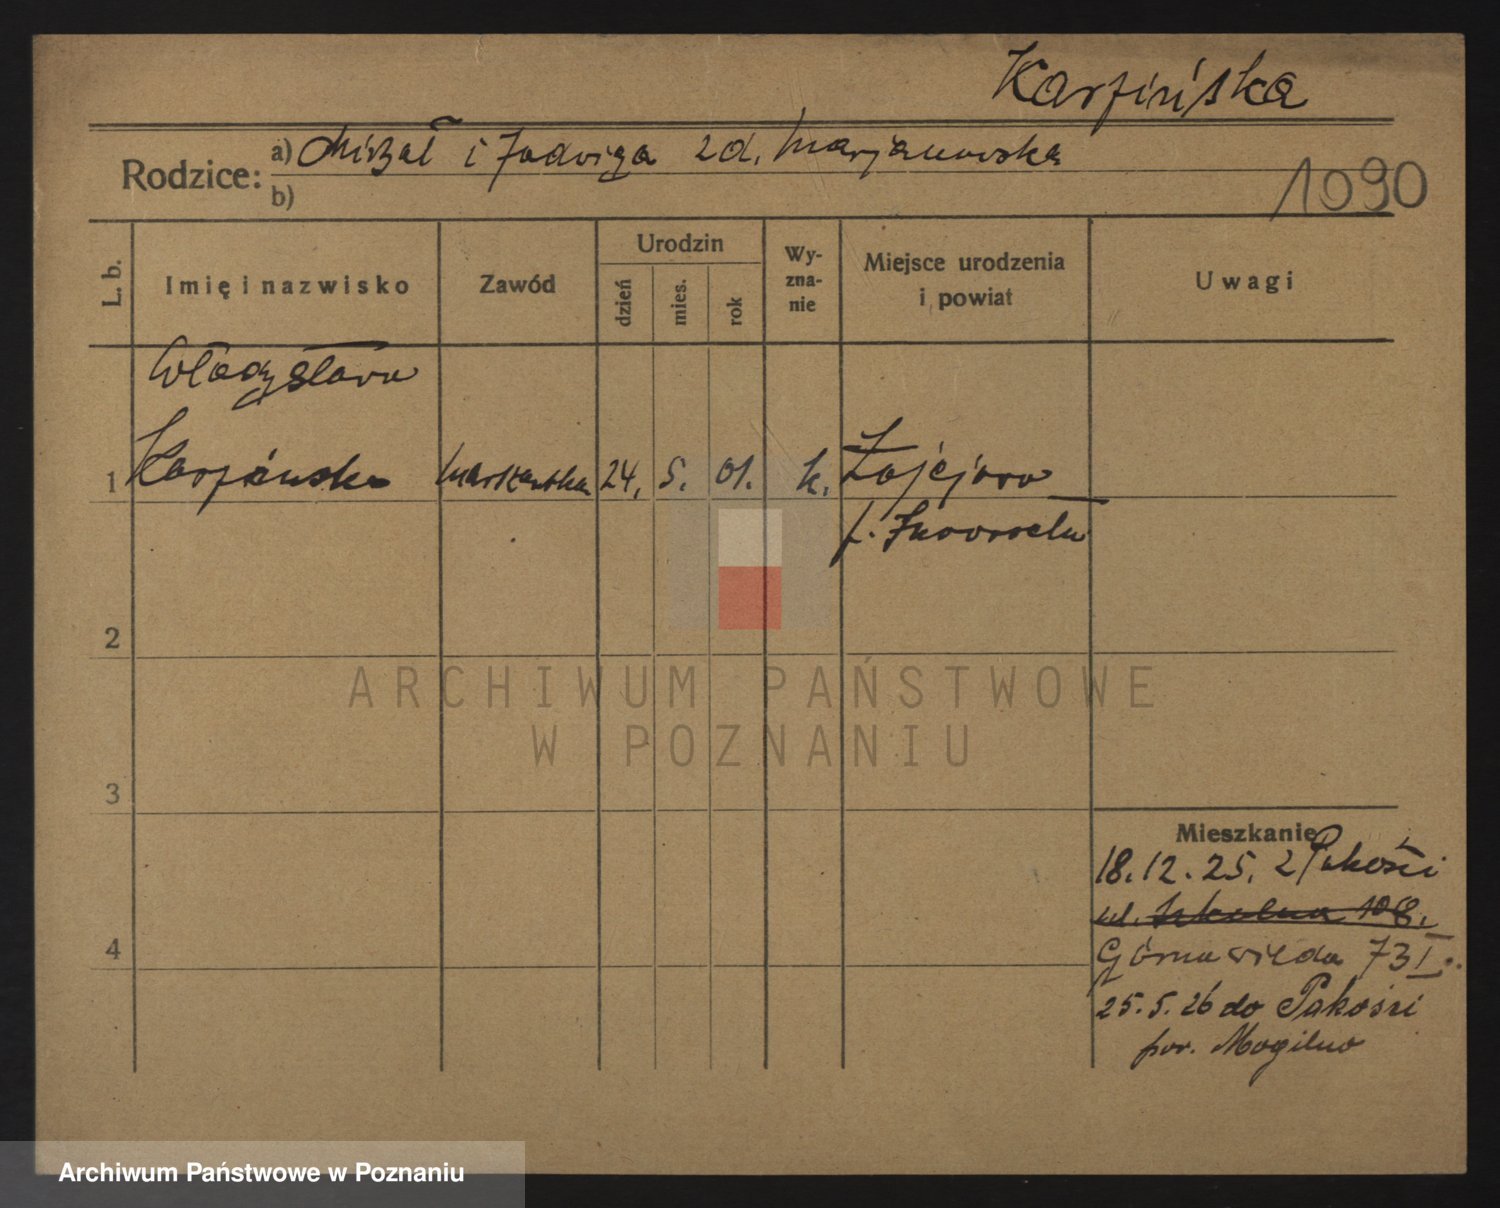 Karpińska
Rodzice: a) Michał i Jadwiga zd. Marjanowska
b)
1090
L. b.
Imię i nazwisko
Zawód
Urodzin
dzień
mies.
rok
Wy-
zna-
nie
Miejsce urodzenia
i powiat
Uwagi
Władysława
1 Karpińska 24. 5. 01. k.
p. Inowrocław
2
ARCHIWUM PAŃSTWOWE
W POZNANIU
3
Mieszkanie
18.12.25. z Pakości
ul. Szkolna 10
Górna Wilda 73 I.
4
25.5.26 do Pakości
pow. Mogilno
Archiwum Państwowe w Poznaniu